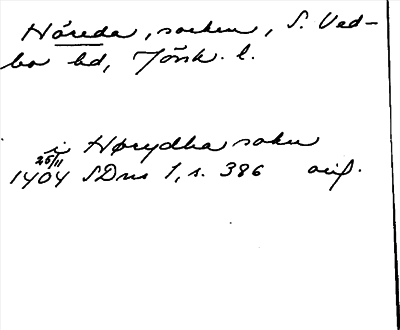 Höreda, socken, S. Ved-
bo hd, Jönk. l.
i Hørydha sokn
25/11
1404 SDns 1, s. 386 orig.